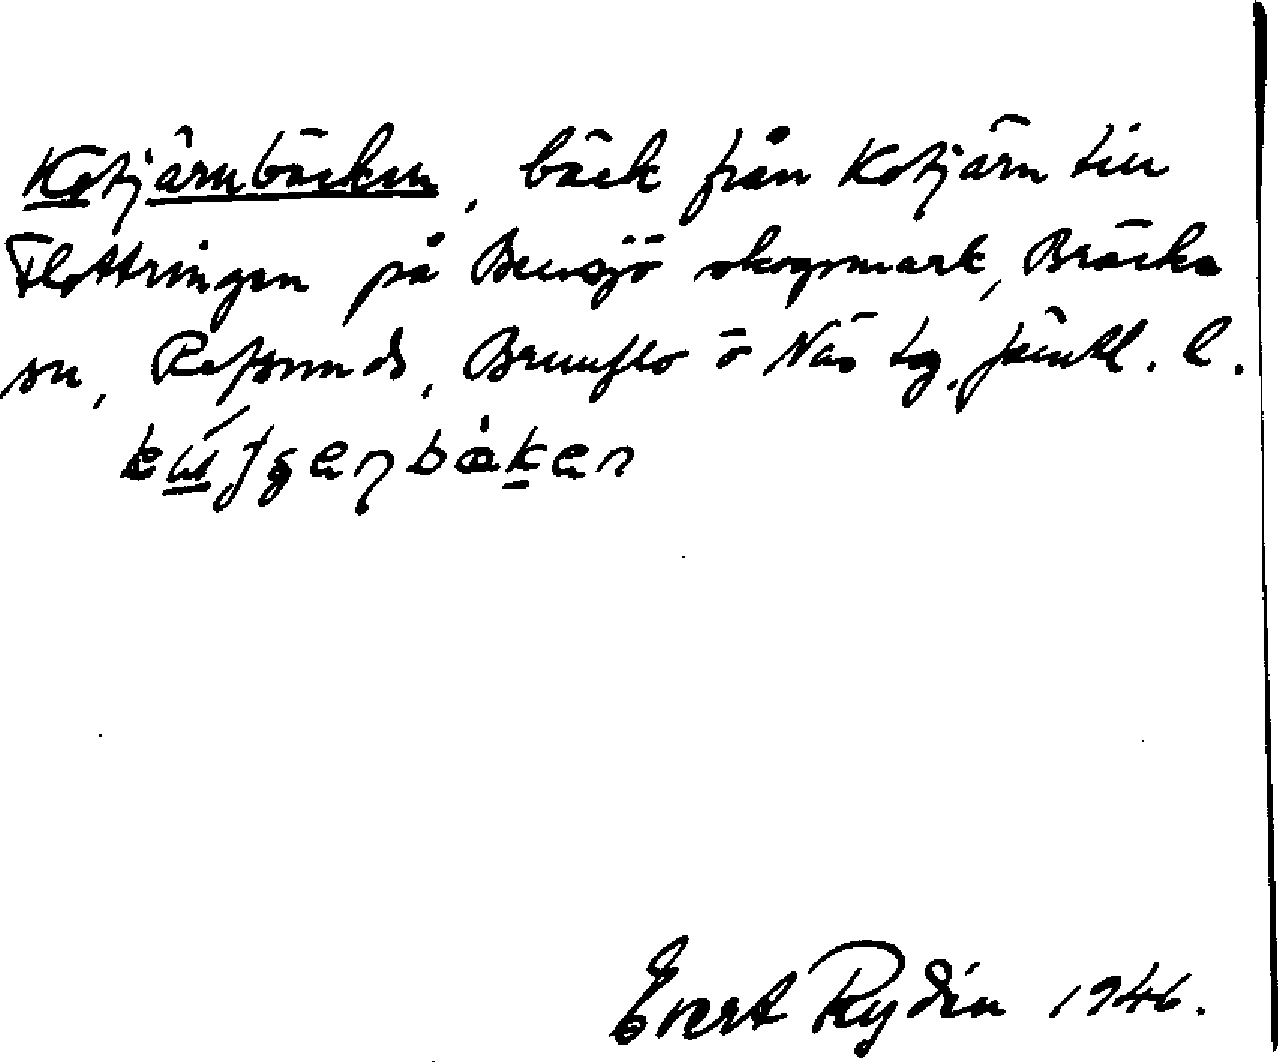 Kotjärnbäcken, bäck från Kotjärn till
Flottringen på Bensjö skogsmark, Bräcke
sn, Refsunds, Brunflo o Näs tg. Jämtl. l.
Evert Rydin 1946.